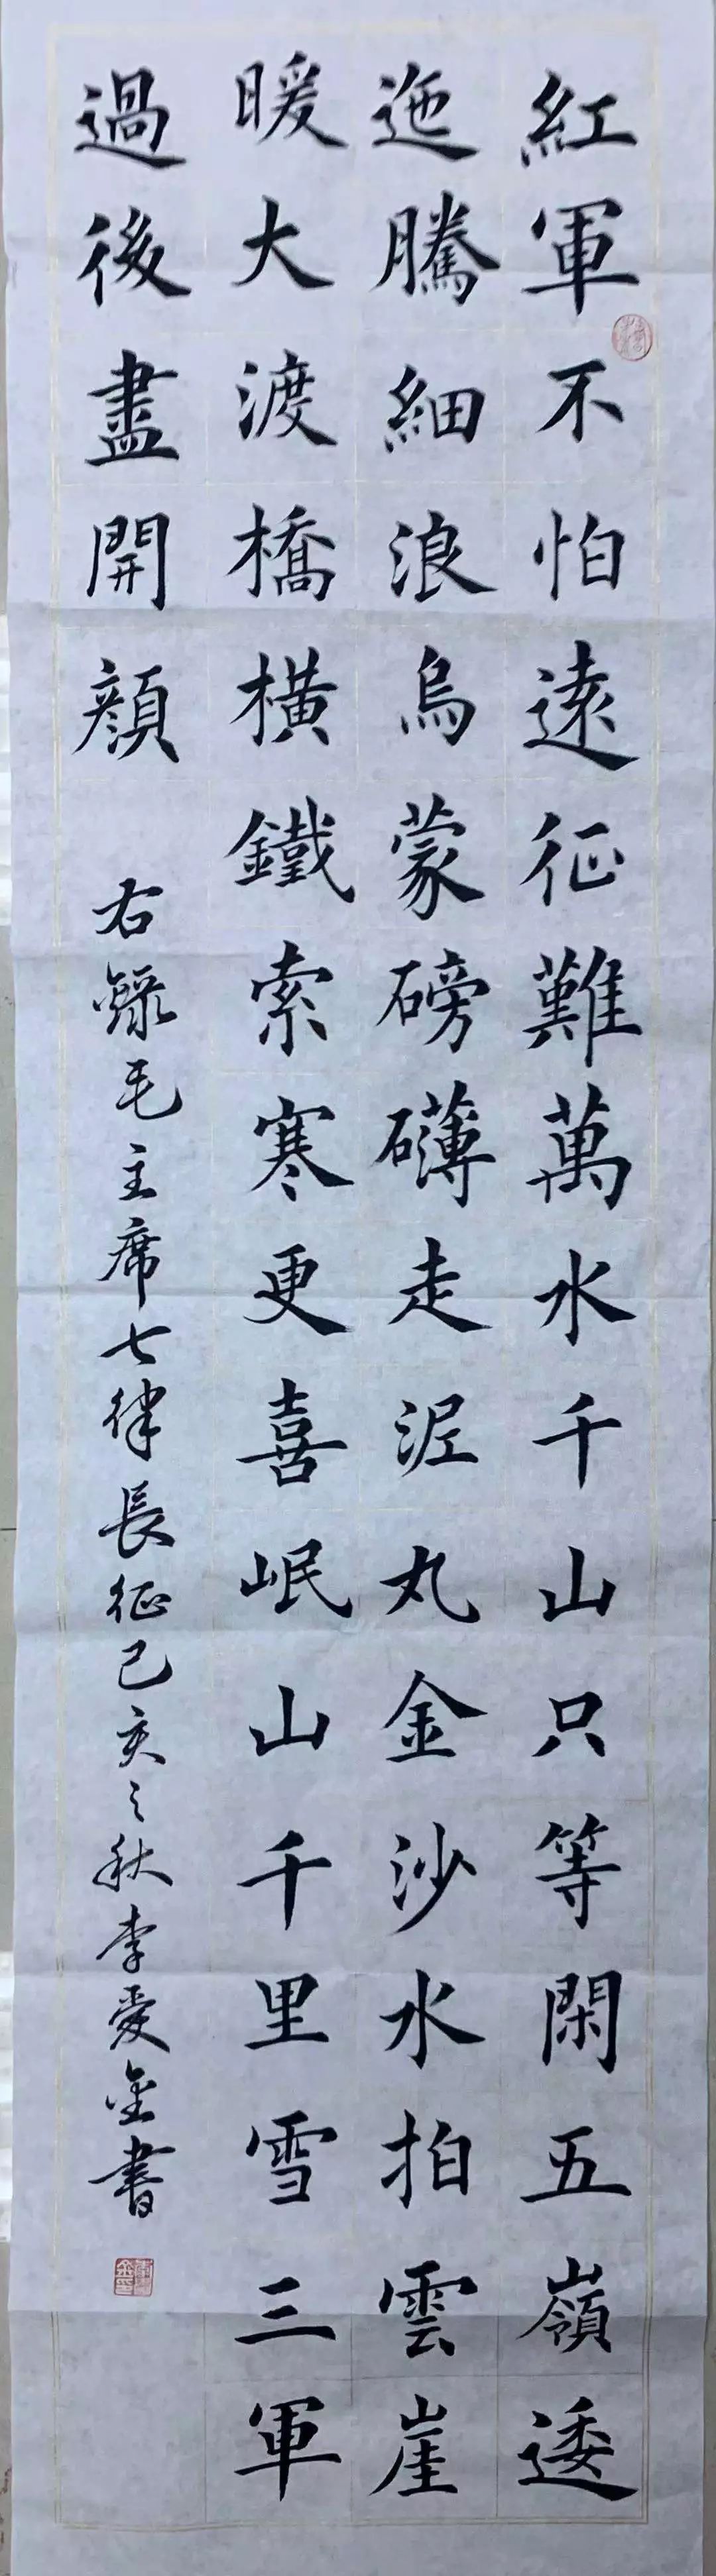 紅軍不怕遠征難萬水千山只等閑五嶺逶
迤騰細浪烏蒙磅礴走泥丸金沙水拍雲崖
暖大渡橋橫鐵索寒更喜岷山千里雪三軍
過後盡開顏
右錄毛主席七律長征己亥之秋李愛金書